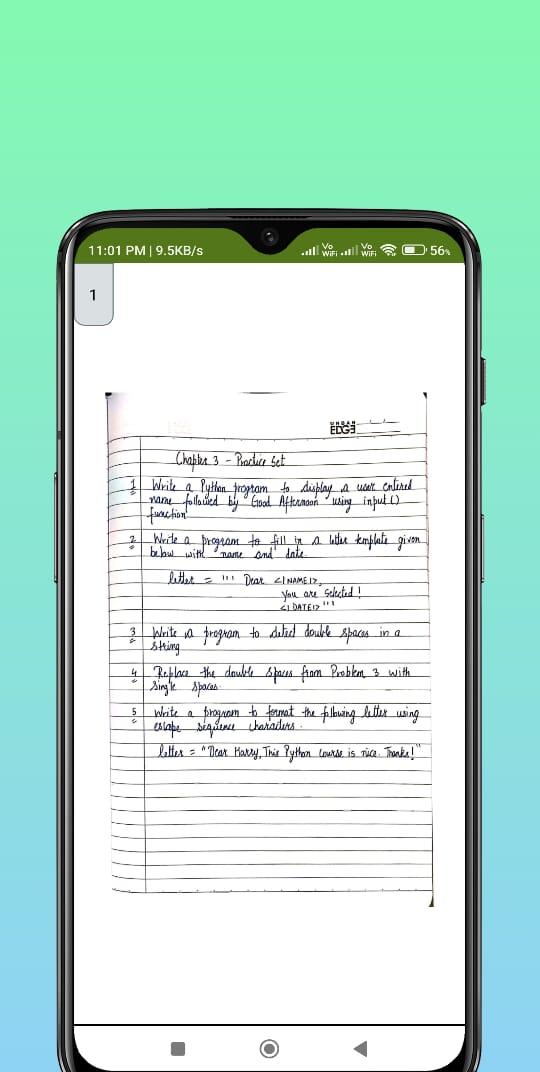 11:01 PM | 9.5KB/s
Vo WiFi
Vo WiFi
56%
1
URBAN
EDGE
Chapter 3 - Practice Set
1 Write a Python program to display a user entered
name followed by Good Afternoon using input()
function
2 Write a program to fill in a letter template given
below with name and date.
letter = ''' Dear <|NAME|>,
You are selected!
<|DATE|> '''
3 Write a program to detect double spaces in a
string
4 Replace the double spaces from Problem 3 with
single spaces.
5 Write a program to format the following letter using
escape sequence characters.
letter = "Dear Harry, This Python course is nice. Thanks!"